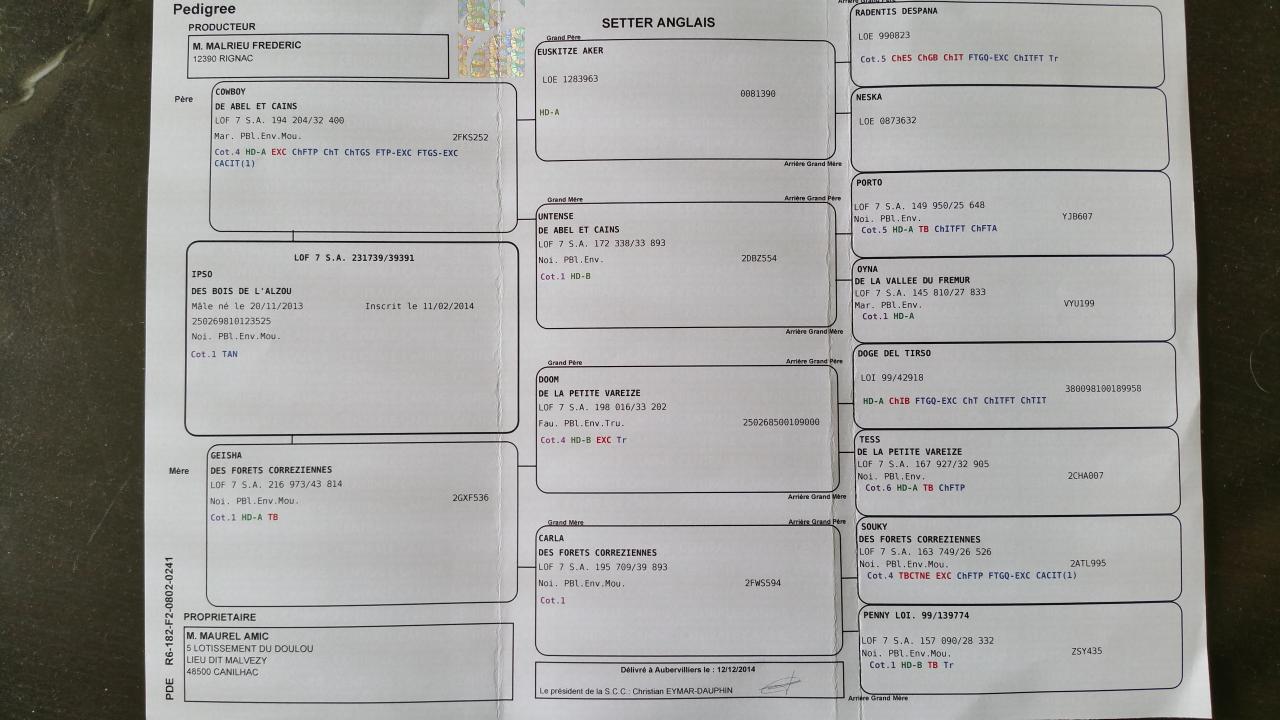 Pedigree
PRODUCTEUR
M. MALRIEU FREDERIC
12390 RIGNAC
SETTER ANGLAIS
Père
COWBOY
DE ABEL ET CAINS
LOF 7 S.A. 194 204/32 400
Mar. PBl.Env.Mou. 2FKS252
Cot.4 HD-A EXC ChFTP ChT ChTGS FTP-EXC FTGS-EXC
CACIT(1)
LOF 7 S.A. 231739/39391
IPSO
DES BOIS DE L'ALZOU
Mâle né le 20/11/2013 Inscrit le 11/02/2014
250269810123525
Noi. PBl.Env.Mou.
Cot.1 TAN
Mère
GEISHA
DES FORETS CORREZIENNES
LOF 7 S.A. 216 973/43 814
Noi. PBl.Env.Mou. 2GXF536
Cot.1 HD-A TB
PROPRIETAIRE
M. MAUREL AMIC
5 LOTISSEMENT DU DOULOU
LIEU DIT MALVEZY
46500 CANILHAC
PDE R6-182-F2-0802-0241
Grand Père
EUSKITZE AKER
LOE 1283963
0081390
HD-A
Arrière Grand Mère
Grand Mère Arrière Grand Père
UNTENSE
DE ABEL ET CAINS
LOF 7 S.A. 172 338/33 893
Noi. PBl.Env. 2DBZ554
Cot.1 HD-B
Arrière Grand Mère
Grand Père Arrière Grand Père
DOOM
DE LA PETITE VAREIZE
LOF 7 S.A. 198 016/33 202
Fau. PBl.Env.Tru. 250268500109000
Cot.4 HD-B EXC Tr
Arrière Grand Mère
Grand Mère Arrière Grand Père
CARLA
DES FORETS CORREZIENNES
LOF 7 S.A. 195 709/39 893
Noi. PBl.Env.Mou. 2FWS594
Cot.1
Délivré à Aubervilliers le : 12/12/2014
Le président de la S.C.C.: Christian EYMAR-DAUPHIN
Arrière Grand Mère
Arrière Grand Père
RADENTIS DESPANA
LOE 990823
Cot.5 ChES ChGB ChIT FTGQ-EXC ChITFT Tr
NESKA
LOE 0873632
PORTO
LOF 7 S.A. 149 950/25 648
Noi. PBl.Env. YJB607
Cot.5 HD-A TB ChITFT ChFTA
OYNA
DE LA VALLEE DU FREMUR
LOF 7 S.A. 145 810/27 833
Mar. PBl.Env. VYU199
Cot.1 HD-A
DOGE DEL TIRSO
LOI 99/42918
380098100189958
HD-A ChIB FTGQ-EXC ChT ChITFT ChTIT
TESS
DE LA PETITE VAREIZE
LOF 7 S.A. 167 927/32 905
Noi. PBl.Env. 2CHA007
Cot.6 HD-A TB ChFTP
SOUKY
DES FORETS CORREZIENNES
LOF 7 S.A. 163 749/26 526
Noi. PBl.Env.Mou. 2ATL995
Cot.4 TBCTNE EXC ChFTP FTGQ-EXC CACIT(1)
PENNY LOI. 99/139774
LOF 7 S.A. 157 090/28 332
Noi. PBl.Env.Mou. ZSY435
Cot.1 HD-B TB Tr